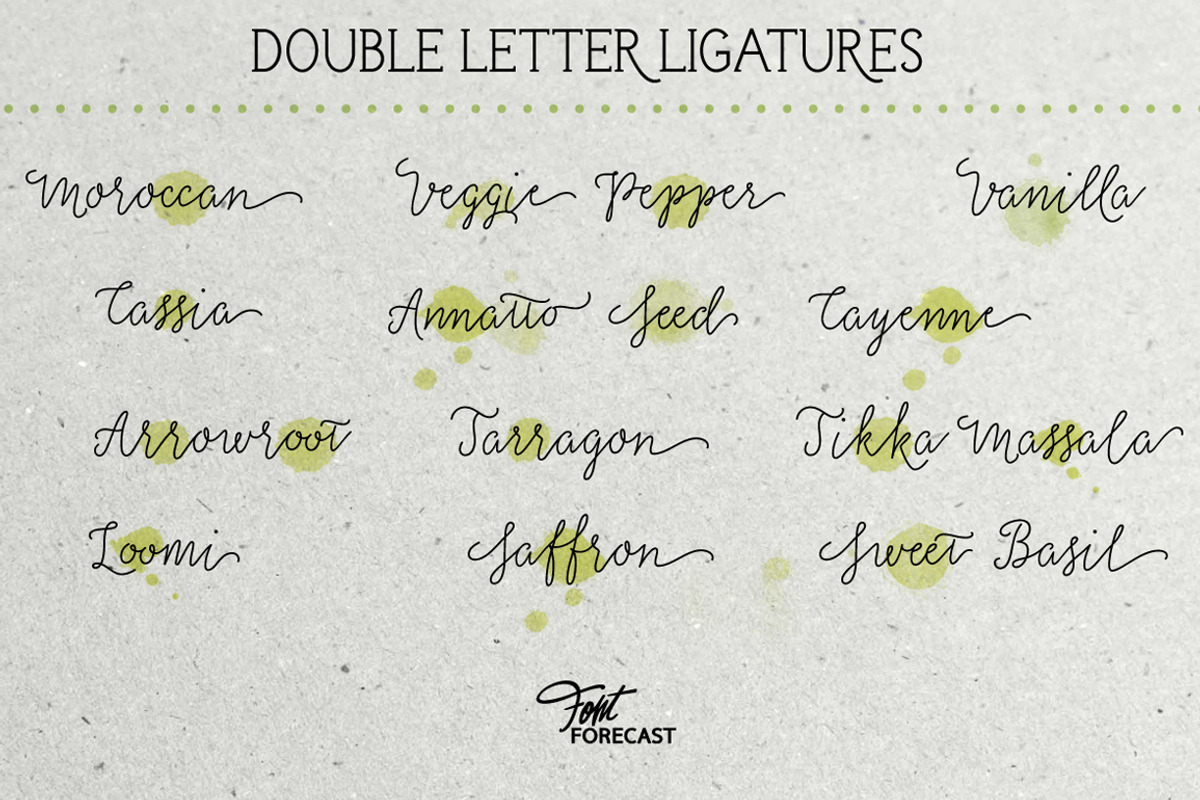 DOUBLE LETTER LIGATURES
Moroccan Veggie Pepper Vanilla
Cassia Annatto Seed Cayenne
Arrowroot Tarragon Tikka Massala
Loomi Saffron Sweet Basil
Font
FORECAST